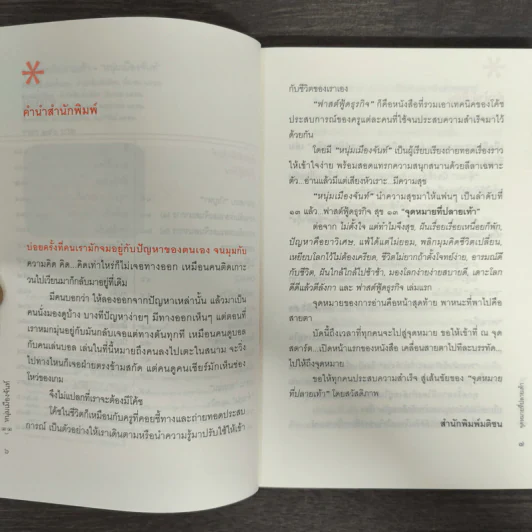 *
คำนำสำนักพิมพ์
บ่อยครั้งที่คนเรามักจมอยู่กับปัญหาของตนเอง จนมุมกับ
ความคิด คิด...คิดเท่าไหร่ก็ไม่เจอทางออก เหมือนคนติดเกาะ
วนไปเวียนมาก็กลับมาอยู่ที่เดิม
มีคนบอกว่า ให้ลองออกจากปัญหาเหล่านั้น แล้วมาเป็น
คนนั่งมองดูบ้าง บางทีปัญหาง่ายๆ มีทางออกเห็นๆ แต่ตอนที่
เราหมกมุ่นอยู่กับมันกลับเจอแต่ทางตันทุกที เหมือนคนดูบอล
กับคนเล่นบอล เล่นในที่นี้หมายถึงคนลงไปเตะในสนาม จะวิ่ง
ไปทางไหนก็เจอฝ่ายตรงข้ามสกัด แต่คนดูคนเชียร์มักเห็นช่อง
โหว่ของเกม
จึงไม่แปลกที่เราจะต้องมีโค้ช
โค้ชในชีวิตก็เหมือนกับครูที่คอยชี้ทางและถ่ายทอดประสบ
การณ์ เป็นตัวอย่างให้เราเดินตามหรือนำความรู้มาปรับใช้ให้เข้า
หนุ่มเมืองจันท์
กับชีวิตของเราเอง
"ฟาสต์ฟู้ดธุรกิจ" ก็คือหนังสือที่รวมเอาเทคนิคของโค้ช
ประสบการณ์ของครูแต่ละคนที่ใช้จนประสบความสำเร็จมาไว้
ด้วยกัน
โดยมี "หนุ่มเมืองจันท์" เป็นผู้เรียบเรียงถ่ายทอดเรื่องราว
ให้เข้าใจง่าย พร้อมสอดแทรกความสนุกสนานด้วยลีลาเฉพาะ
ตัว...อ่านแล้วมีแต่เสียงหัวเราะ...มีความสุข
"หนุ่มเมืองจันท์" นำความสุขมาให้แฟนๆ เป็นลำดับที่
๑๓ แล้ว ฟาสต์ฟู้ดธุรกิจ สุข ๑๓ "จุดหมายที่ปลายเท้า"
ต่อจาก ไม่ตั้งใจ แต่ทำไมจึงสุข, ฝันเรื่อยเรื่อยเหนื่อยก็พัก,
ปัญหาคือยาวิเศษ, แพ้ได้แต่ไม่ยอม, พลิกมุมคิดชีวิตเปลี่ยน,
เหยียบโลกไว้ไม่ต้องเครียด, ชีวิตไม่ยากถ้าตั้งโจทย์ง่าย, อารมณ์ดี
กับชีวิต, ฝันใกล้ใกล้ไปช้าช้า, มองโลกง่ายง่ายสบายดี, เตะโลก
ดีดีแล้วตีลังกา และ ฟาสต์ฟู้ดธุรกิจ เล่มแรก
จุดหมายของการอ่านคือหน้าสุดท้าย พาหนะที่พาไปคือ
สายตา
บัดนี้ถึงเวลาที่ทุกคนจะไปสู่จุดหมาย ขอให้เข้าที่ ณ จุด
สตาร์ต...เปิดหน้าแรกของหนังสือ เคลื่อนสายตาไปทีละบรรทัด...
ไปให้ถึงจุดหมาย
ขอให้ทุกคนประสบความสำเร็จ สู่เส้นชัยของ "จุดหมาย
ที่ปลายเท้า" โดยสวัสดิภาพ
สำนักพิมพ์มติชน
จุดหมายที่ปลายเท้า